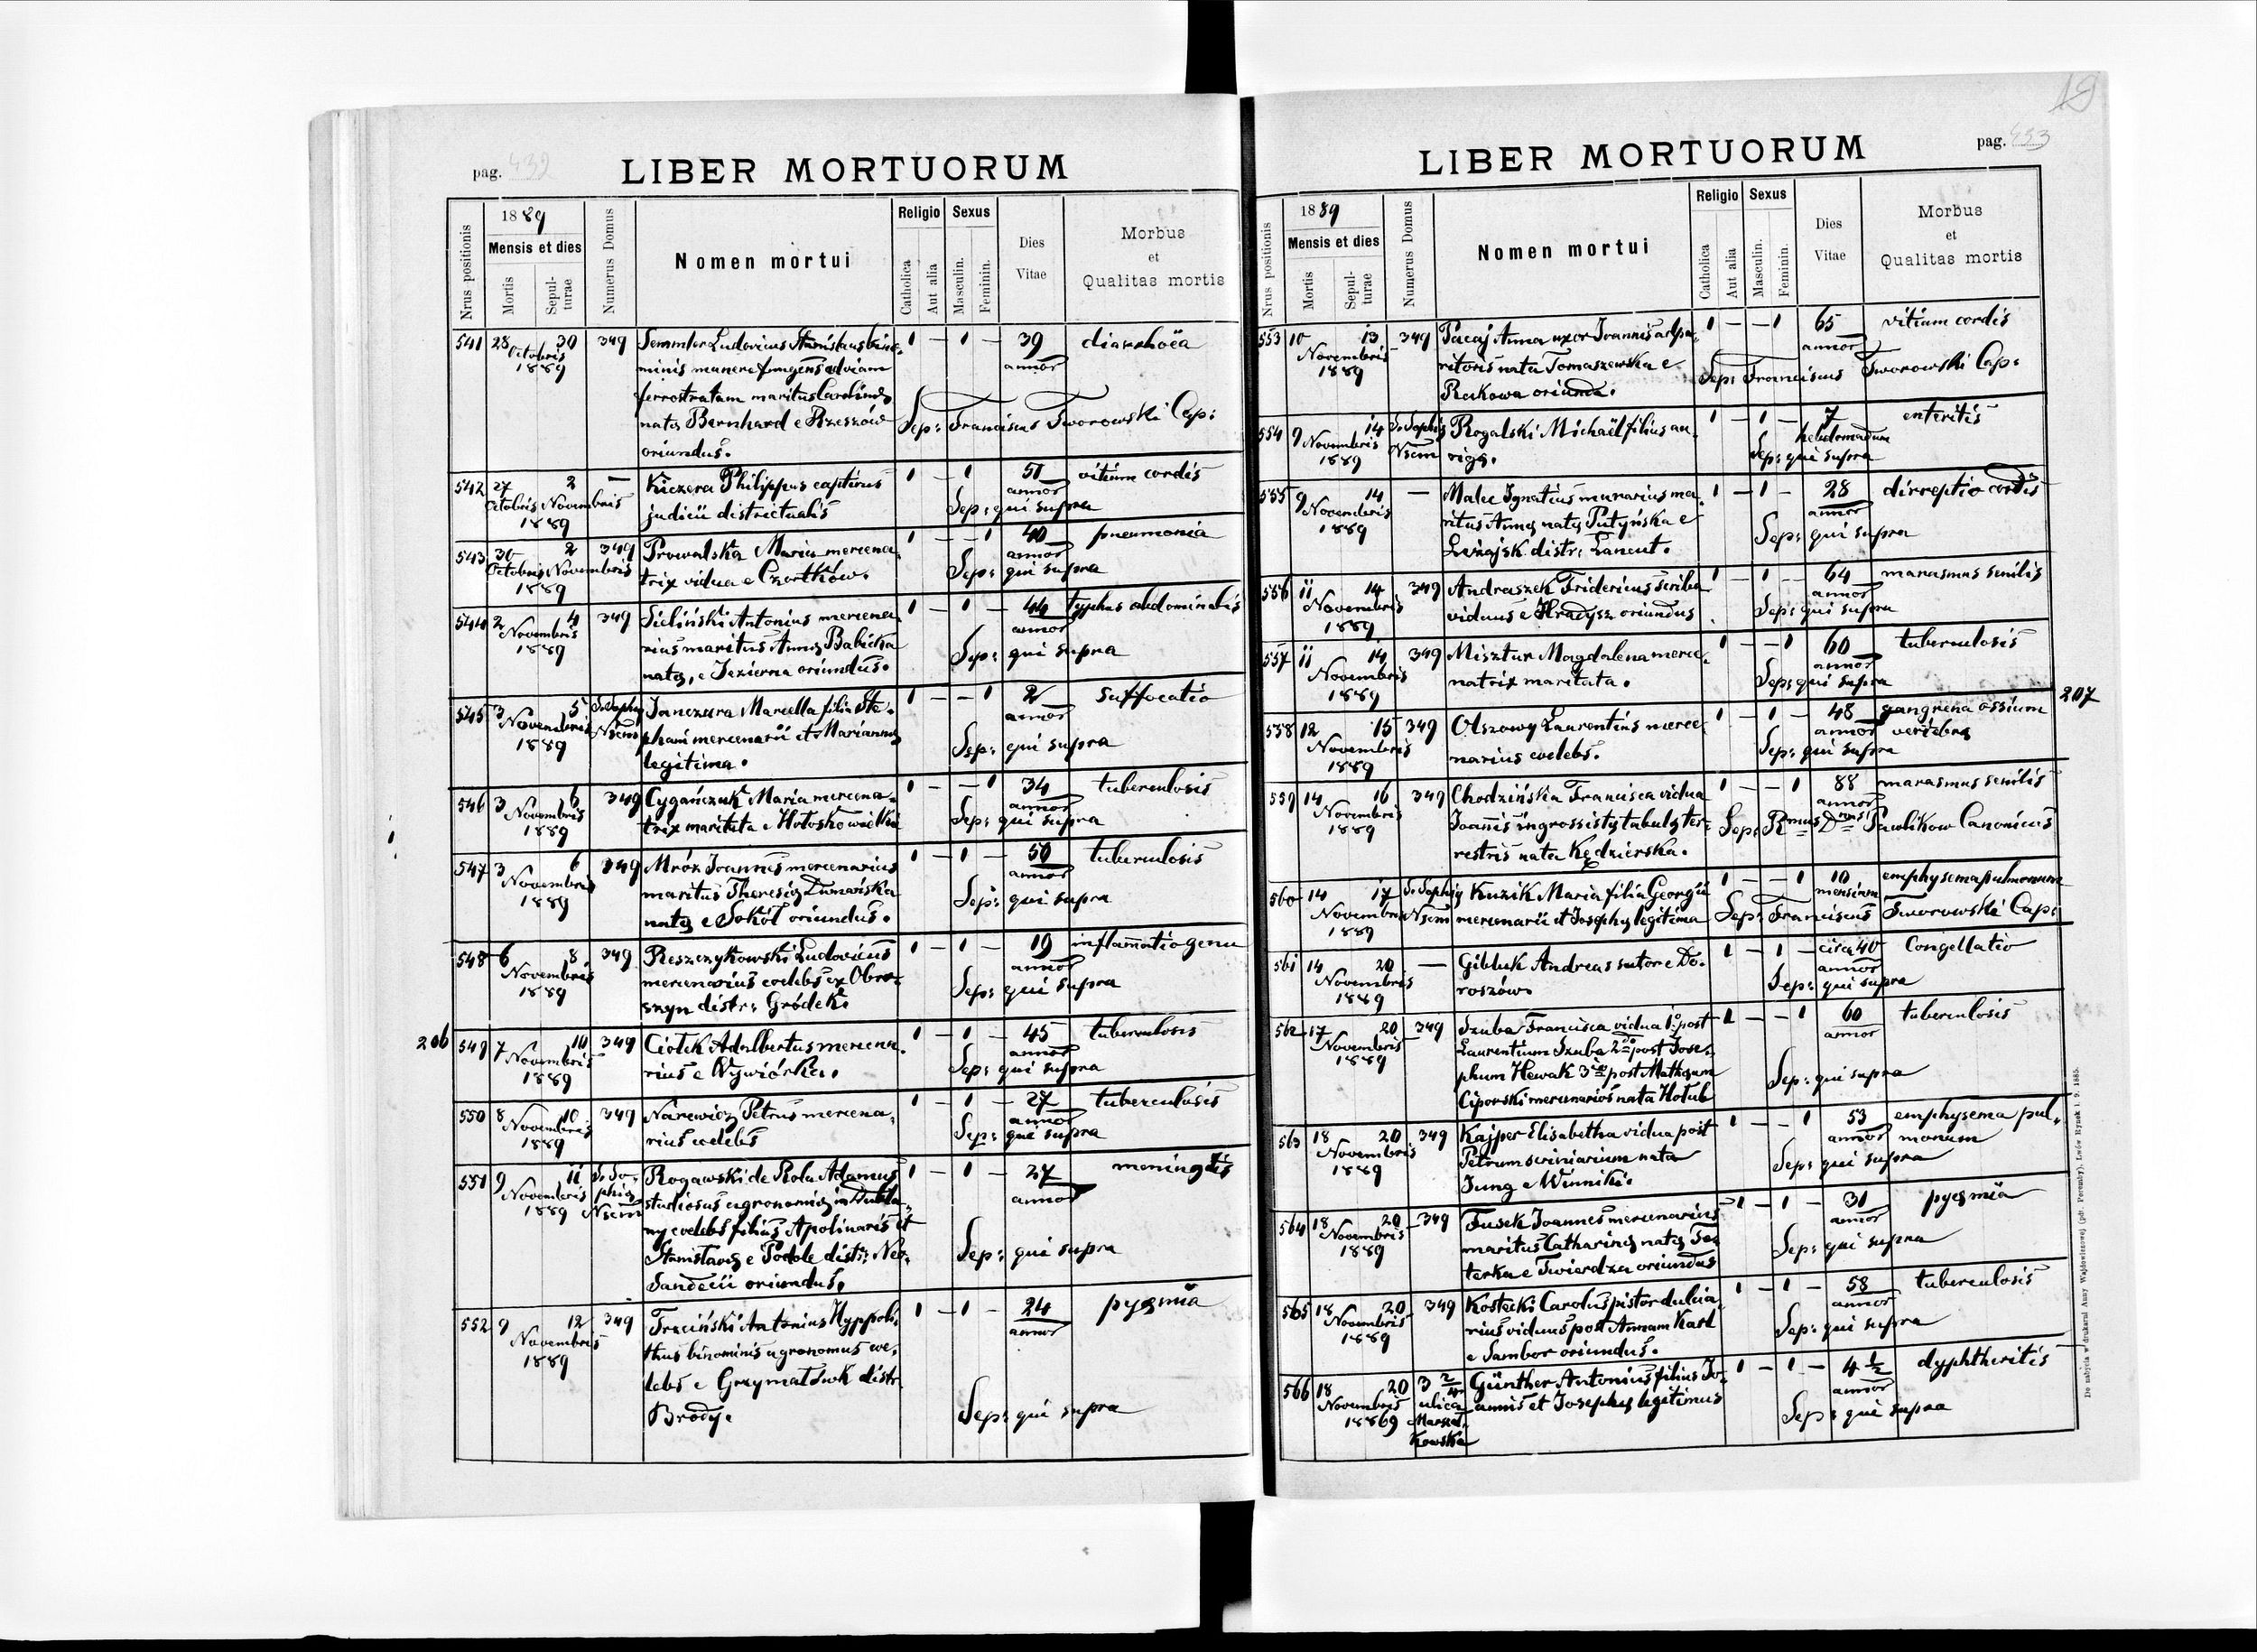 pag. 432
LIBER MORTUORUM
Nrus positionis
1889
Mensis et dies
Mortis
Sepulturae
Numerus Domus
Nomen mortui
Religio
Catholica
Aut alia
Sexus
Masculin.
Feminin.
Dies
Vitae
Morbus
et
Qualitas mortis
541 28 30 349 Semmler Ludovicus Stanislaus bino- 1 — 1 — 39 diarrhoëa
Octobris minis munere fungens ad viam annor
1889 ferrostratam maritus Carolinæ
natæ Bernhard e Rzeszów Sep: Franciscus Tworowski Cap:
oriundus.
542 27 2 — Kiczera Philippus captivus 1 — 1 51 vitium cordis
Octobris Novembris judicii districtualis annor
1889 Sep: qui supra
543 30 2 349 Prowalska Maria mercena- 1 — — 1 40 pneumonia
Octobris Novembris trix vidua e Czortków. annor
1889 Sep: qui supra
544 2 4 349 Sieliński Antonius mercena- 1 — 1 — 44 typhus abdominalis
Novembris rius maritus Annæ Babicka annor
1889 natæ, e Jezierna oriundus. Sep: qui supra
545 3 5 S. Sophiæ Janczura Marcella filia Ste- 1 — — 1 2 suffocatio
Novembris Nsem phani mercenarii et Mariannæ annor
1889 legitima. Sep: qui supra
546 3 6 349 Cygańczuk Maria mercena- 1 — — 1 34 tuberculosis
Novembris trix maritata e Hołosko wielkie annor
1889 Sep: qui supra
547 3 6 349 Mróz Joannes mercenarius 1 — 1 — 50 tuberculosis
Novembris maritus Theresiæ Dumańska annor
1889 natæ e Sokół oriundus. Sep: qui supra
548 6 8 349 Reszczykowski Ludovicus 1 — 1 — 19 inflamatio genu
Novembris mercenarius coelebs ex Obro- annor
1889 szyn distr: Gródek. Sep: qui supra
206
549 7 10 349 Ciołek Adalbertus mercena- 1 — 1 — 45 tuberculosis
Novembris rius e Wywiórka. annor
1889 Sep: qui supra
550 8 10 349 Narewicz Petrus mercena- 1 — 1 — 27 tuberculosis
Novembris rius coelebs annor
1889 Sep: qui supra
551 9 11 S. So- Rogawski de Rola Adamus 1 — 1 — 27 meningitis
Novembris phiæ studiosus agronomiæ in Dubla- annor
1889 Nsem ny coelebs filius Apolinaris et
Stanislavæ e Podole distr: Neo- Sep: qui supra
Sandecii oriundus,
552 9 12 349 Trzciński Antonius Hyppoli- 1 — 1 — 24 pyæmia
Novembris thus binominis agronomus coe- annor
1889 lebs e Grzymałówk distr.
Brody. Sep: qui supra
19
pag. 433
LIBER MORTUORUM
Nrus positionis
1889
Mensis et dies
Mortis
Sepulturae
Numerus Domus
Nomen mortui
Religio
Catholica
Aut alia
Sexus
Masculin.
Feminin.
Dies
Vitae
Morbus
et
Qualitas mortis
553 10 13 349 Pacaj Anna uxor Joannis as 1 — — 1 65 vitium cordis
Novembris ritoris nata Tomaszewska e annor
1889 Rakowa oriunda. Sep: Franciscus Tworowski Cap:
554 9 14 S. Sophiæ Rogalski Michaël filius au- 1 — 1 — 7 enteritis
Novembris Nsem rigæ. hebdomadum
1889 Sep: qui supra
555 9 14 — Malec Ignatius murarius ma- 1 — 1 — 28 dirreptio cordis
Novembris ritus Annæ natæ Putyńska e annor
1889 Leżajsk distr: Lancut. Sep: qui supra
556 11 14 349 Andraszek Fridericus scriba 1 — 1 — 64 marasmus senilis
Novembris viduus e Hradysz oriundus annor
1889 Sep: qui supra
557 11 14 349 Misztur Magdalena merce- 1 — — 1 60 tuberculosis
Novembris natrix maritata. annor
1889 Sep: qui supra
207
558 12 15 349 Olszowy Laurentius merce- 1 — 1 — 48 gangrena ossium
Novembris narius coelebs. annor vertebræ
1889 Sep: qui supra
559 14 16 349 Chodzińska Francisca vidua 1 — — 1 88 marasmus senilis
Novembris Joannis ingrossistæ tabulæ ter- annor
1889 restris nata Kędzierska. Sep: Rmus Dnus Pawlikow Canonicus
560 14 17 S. Sophiæ Kuzik Maria filia Georgii 1 — — 1 10 emphysema pulmonum
Novembris Nsem mercenarii et Josephæ legitima mensium
1889 Sep: Franciscus Tworowski Cap:
561 14 20 — Gibluk Andreas sutor e Do- 1 — 1 — circa 40 Congellatio
Novembris roszów. annor
1889 Sep: qui supra
562 17 20 349 Szuba Francisca vidua 1º post 1 — — 1 60 tuberculosis
Novembris Laurentium Szuba 2do post Jose- annor
1889 phum Hewak 3tio post Mathæum Sep: qui supra
Ciporski mercenarios nata Hołub
563 18 20 349 Kajper Elisabetha vidua post 1 — — 1 53 emphysema pul-
Novembris Petrum scriniarium nata annor monum
1889 Jung e Winniki. Sep: qui supra
564 18 20 349 Fusek Joannes mercenarius 1 — 1 — 31 pyæmia
Novembris maritus Catharinæ natæ annor
1889 terka e Twierdza oriundus Sep: qui supra
565 18 20 349 Kostecki Carolus pistor dulcia- 1 — 1 — 58 tuberculosis
Novembris rius viduus post Annam Karl annor
1889 e Sambor oriundus. Sep: qui supra
566 18 20 3 2/4 Günther Antonius filius Jo- 1 — 1 — 4 1/2 dyphtheritis
Novembris ulica annis et Josephæ legitimus annor
18869 Marszał- Sep: qui supra
kowska
Do nabycia w drukarni Anny Wajdowiczowej (pdr. Poremby). Lwów Rynek l. 9. 1885.